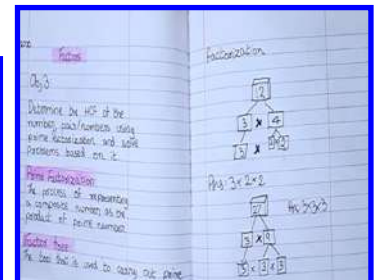 Factors
Obj 3
Determine the HCF of the
number pair/numbers using
prime factorization and solve
problems based on it.
Prime Factorization
The process of representing
a composite number as the
product of prime number.
Factor tree
The tool that is used to carry out prime
Factorization
12
3 × 4
3 × 2×2
Ans: 3×2×2
27
Ans 3×3×3
3 × 9
3 × 3 × 3